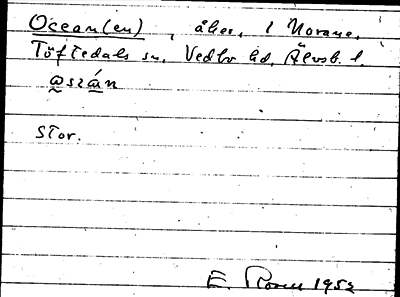 Ocean(en), åker, i Norane,
Töftedals sn. Vedbo hd, Älvsb. l.
stor.
E. 1952